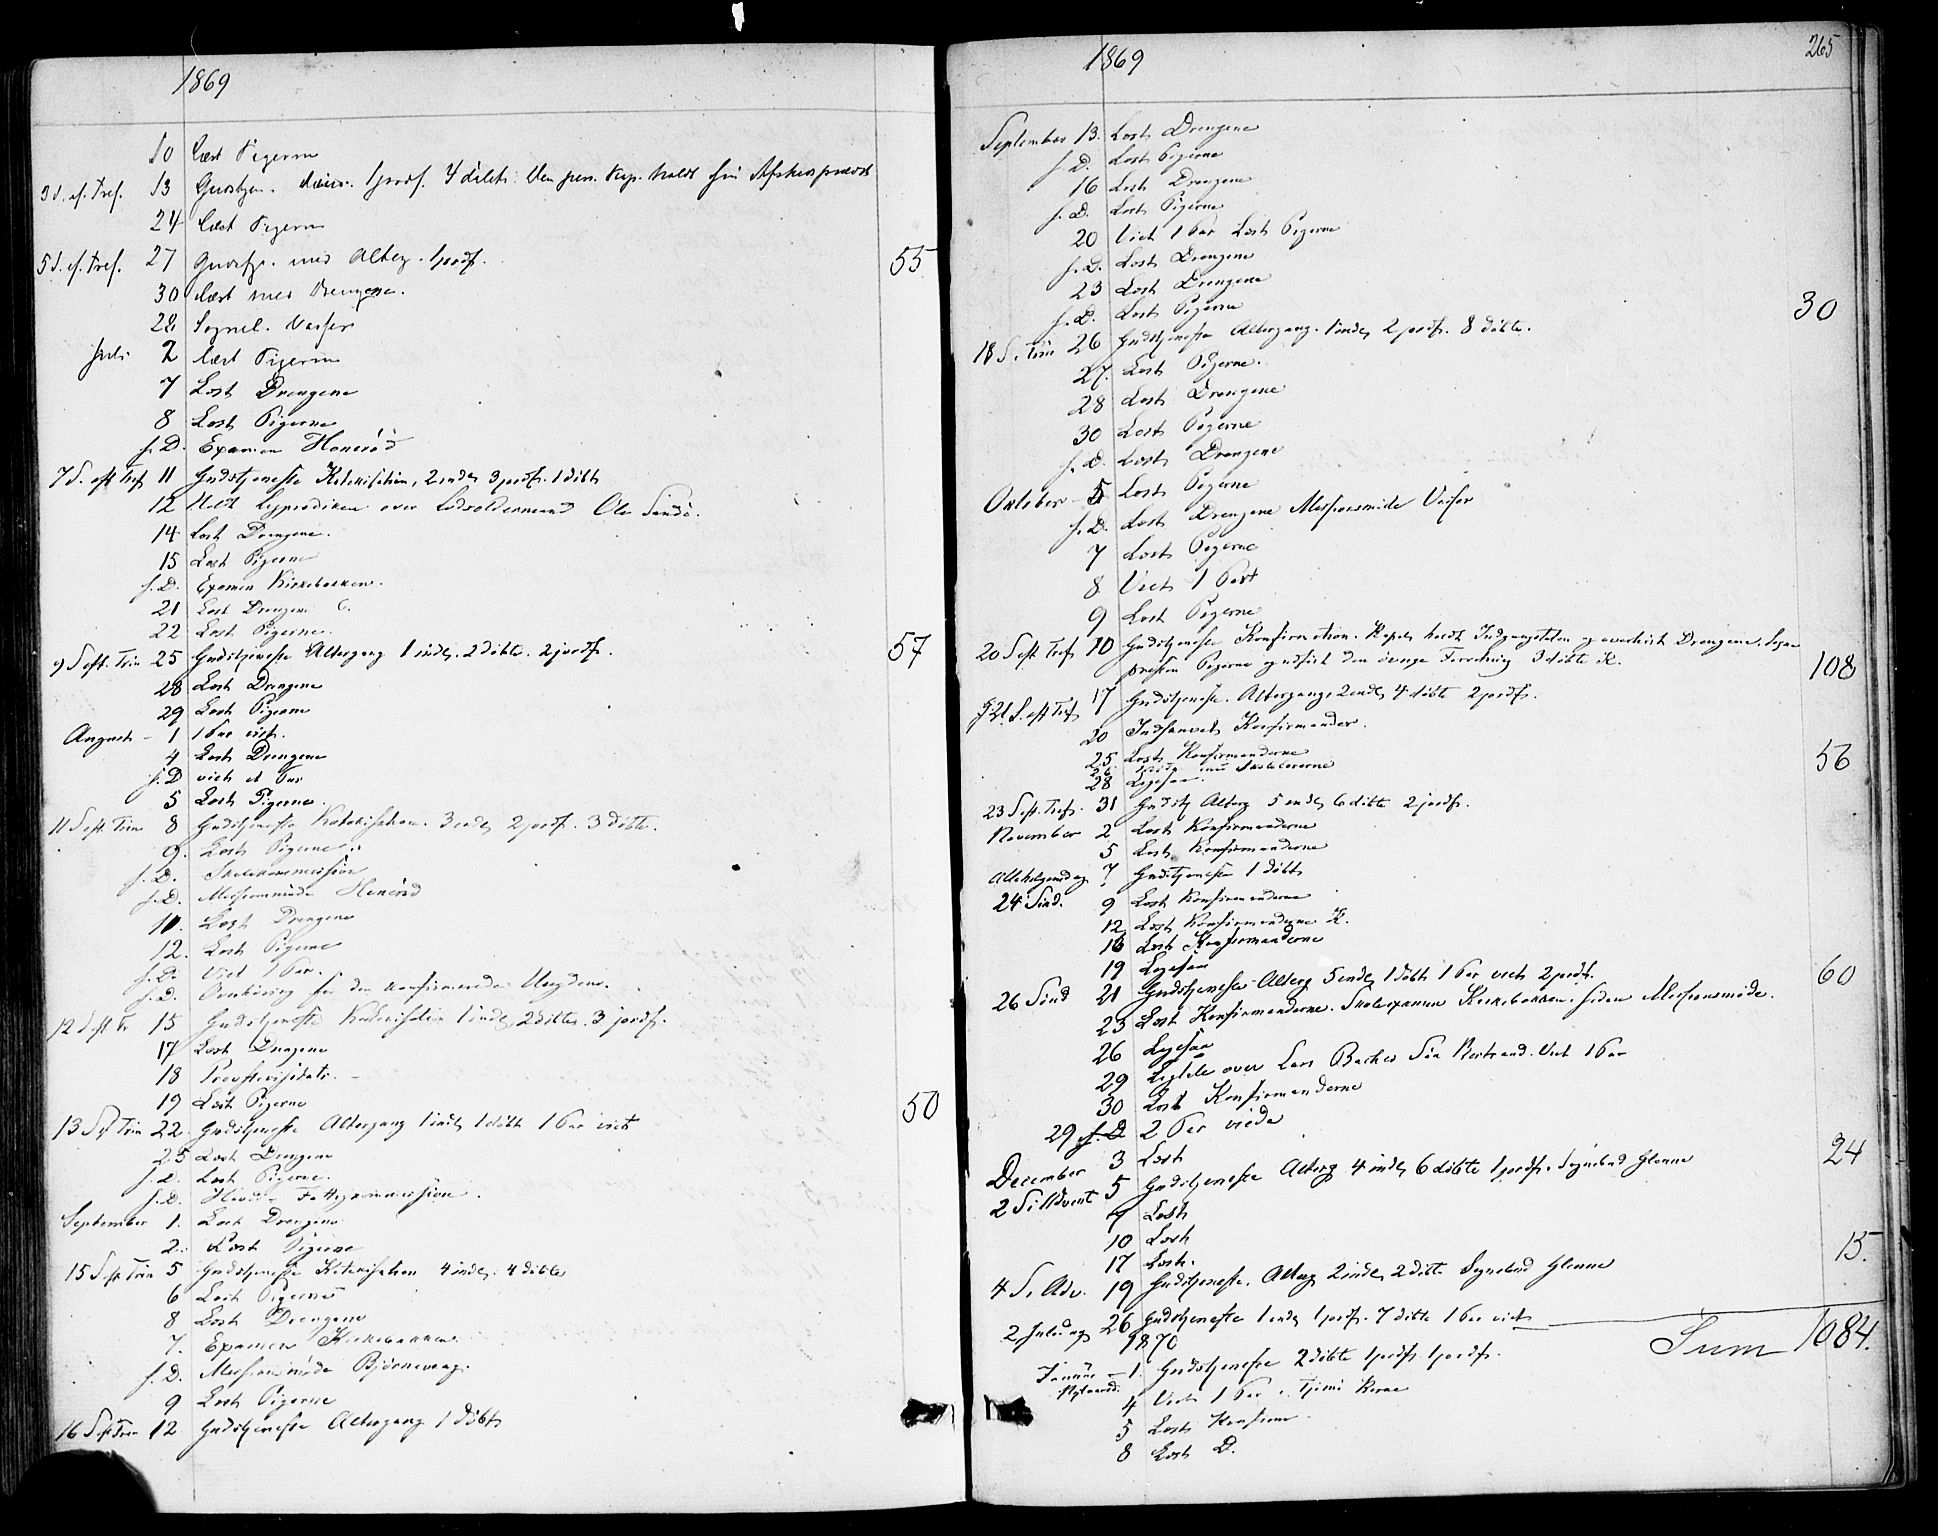 1869
10 Læst Pigerne
3 S. ef. Tref. 13 Gudstjen. 1 jordf. 4 døbte. Den pers. Kap. holdt sin Afskedspræd
24 Læst Pigerne
5 S. ef. Tref. 27 Gudstj. med Alterg. 1 jordf. 55
30 Læst med Drengene.
28 Sogneb.
Juli 2 Læst Pigerne
7 Læst Drengene
8 Læst Pigerne
s. D. Examen Hanerød
7 S. eft Tref 11 Gudstjeneste Katekisation, 2 indl 3 jordf. 1 døbt
12 Holdt Ligprædiken over Lodsoldermand Ole Sandø.
14 Læst Drengene.
15 Læst Pigerne
s. D. Examen Kirkebakken.
21 Læst Drengene
22 Læst Pigerne.
9 S eft. Trin 25 Gudstjeneste Altergang 1 indl. 2 døbte. 2 jordf. 57
28 Læst Drengene
29 Læst Pigerne
August - 1 1 Par viet.
4 Læst Drengene
s. D viet et Par
5 Læst Pigerne.
11 S eft. Trin 8 Gudstjeneste Katekisation. 3 indl 2 jordf. 3 døbte.
9. Læst Pigerne.
s. D. Skolekommission
s. D. Missionsmøde Hanerød
10. Læst Drengene
12. Læst Pigerne
s. D. Viet 1 Par.
s. D. Overhøring for den konfirmerede Ungdom.
12 S eft Tr 15 Gudstjeneste Katekisation 1 indl, 2 døbte. 3 jordf.
17 Læst Drengene
18 Provstevisitats. -
19 Læst Pigerne
13 S ef Trin 22. Gudstjeneste Altergang 1 indl 1 døbt 1 Par viet 50
25 Læst Drengene
s. D. Læst Pigerne.
s. D. Fattigkommission.
September 1. Læst Drengene
2. Læst Pigerne
15 S eft Trin 5 Gudstjeneste Katekisation 4 indl. 4 døbte
6 Læst Pigerne
8 Læst Drengene
7. Examen Kirkebakken
s. D. Missionsmøde Bjørnevaag.
9 Læst Pigerne
16 S eft Tren 12 Gudstjeneste Altergang 1 døbt
1869 265
September 13. Læst Drengene
s. D. Læst Pigerne
16 Læst Drengene
s. D. Læst Pigerne
20 Viet 1 Par Læst Pigerne
s. D. Læst Drengene
23 Læst Drengene
s. D. Læst Pigerne
18 S. Trin 26 Gudstjeneste Altergang. 1 indl, 2 jordf. 8 døbte. 30
27. Læst Pigerne.
28 Læst Drengene
30 Læst Pigerne
s. D. Læst Drengene
Oktober - 5 Læst Pigerne
s. D. Læst Drengene Missionsmøde
7 Læst Pigerne
8 Viet 1 Par
9 Læst Pigerne
20 S eft Tref 10 Gudstjeneste Konfirmation. Kapel. holdt Indgangstalen og overhørte Drengene, Sogne
præsten Pigerne og udførte den øvrige Forretning 3 døbte K. 108
21. S. eft Tref 17 Gudstjeneste. Altergang, 2 indl, 4 døbte 2 jordf.
20 Indskrevet Konfirmander.
25 Læst Konfirmanderne
26 med Skolelærerne
28 Ligesaa. 56
23 S eft. Tref. 31 Gudstj Alterg 5 indl 6 døbte 2 jordf.
November 2 Læst Konfirmanderne
5 Læst Konfirmanderne
Allehelgensdag 7 Gudstjeneste 1 døbt
24 Sind. 9 Læst Konfirmanderne
12 Læst Konfirmanderne K.
16 Læst Konfirmanderne
19 Ligesaa
26 Sind 21 Gudstjeneste - Alterg 5 indl, 1 døbt 1 Par viet 2 jordf. 60
23 Læst Konfirmanderne. Skoleexamen Kirkebakken, siden Missionsmøde.
26 Ligesaa
29 Ligtale over Lars Viet 1 Par
30 Læst Konfirmanderne
29 s. D 2 Par viede
December 3 Læst
2 S i Advent 5 Gudstjeneste Alterg 4 indl, 6 døbte 1 jordf. Sognebud Glenne 24
7 Læst
10 Læst
17 Læst.
4 S. Adv. 19 Gudstjeneste. Alterg 2 indl, 2 døbte Sognebud Glenne 15.
2 Juledag 26 Gudstjeneste 1 indl 1 jordf. 7 døbte 1 Par viet
Sum 1084.
1870
Januar - 1. Gudstjeneste 2 døbte 1 jordf. 1 jordf.
Nytaarsd.
4 Viet 1 Par i Tjømø Kirke
5 Læst Konfirm.
8 Læst D.